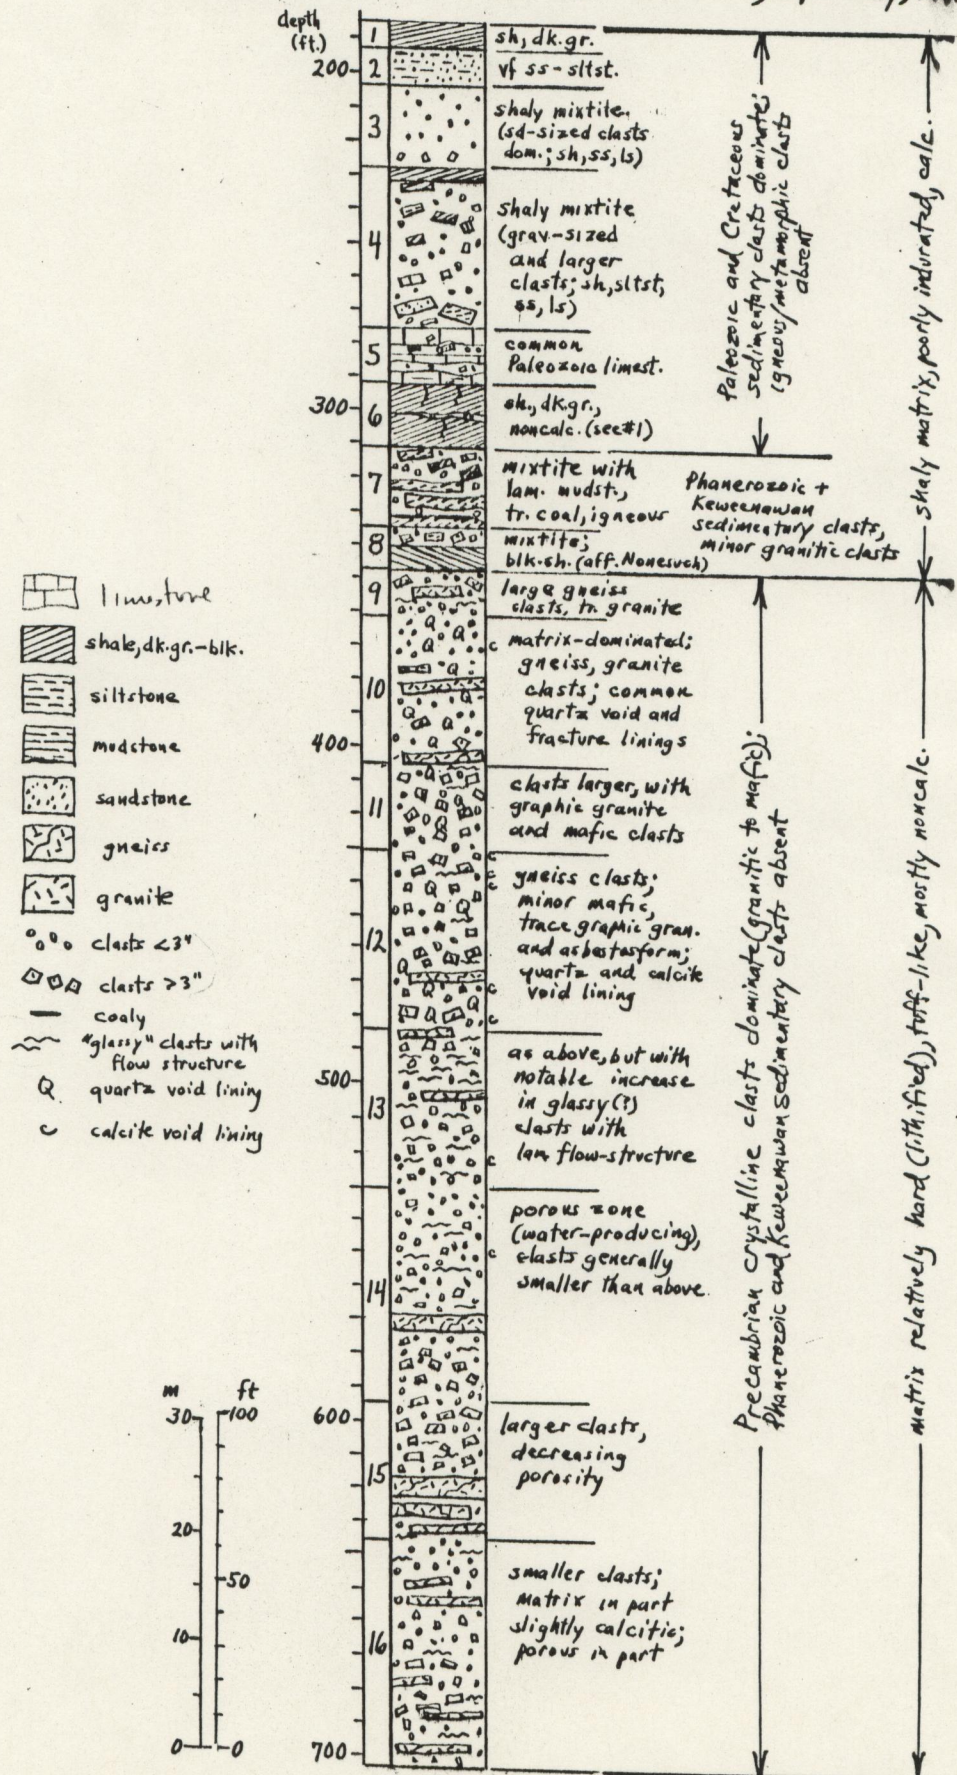 depth
(ft.)
1
sh, dk.gr.
200
2
vf ss-sltst.
3
shaly mixtite.
(sd-sized clasts
dom.; sh, ss, ls)
4
shaly mixtite
(grav-sized
and larger
clasts; sh, sltst,
ss, ls)
5
common
Paleozoic limest.
300
6
sh., dk.gr.,
noncalc. (see #1)
7
mixtite with
lam. mudst.,
tr. coal, igneous
8
mixtite;
blk.sh. (aff. Nonesuch)
9
large gneiss
clasts, tr. granite
10
matrix-dominated;
gneiss, granite
clasts; common
quartz void and
fracture linings
400
11
clasts larger, with
graphic granite
and mafic clasts
12
gneiss clasts;
minor mafic,
trace graphic gran.
and asbestosform;
quartz and calcite
void lining
500
13
as above, but with
notable increase
in glassy(?)
clasts with
lam flow-structure
14
porous zone
(water-producing),
clasts generally
smaller than above
600
15
larger clasts,
decreasing
porosity
16
smaller clasts;
matrix in part
slightly calcitic;
porous in part
700
Paleozoic and Cretaceous
sedimentary clasts dominate;
igneous/metamorphic clasts
absent
Phanerozoic +
Keweenawan
sedimentary clasts,
minor granitic clasts
Precambrian crystalline clasts dominate (granitic to mafic);
Phanerozoic and Keweenawan sedimentary clasts absent
shaly matrix, poorly indurated, calc.
matrix relatively hard (lithified), tuff-like, mostly noncalc.
limestone
shale, dk.gr.-blk.
siltstone
mudstone
sandstone
gneiss
granite
clasts <3"
clasts >3"
coaly
"glassy" clasts with
flow structure
Q quartz void lining
c calcite void lining
m ft
30 100
20
50
10
0 0